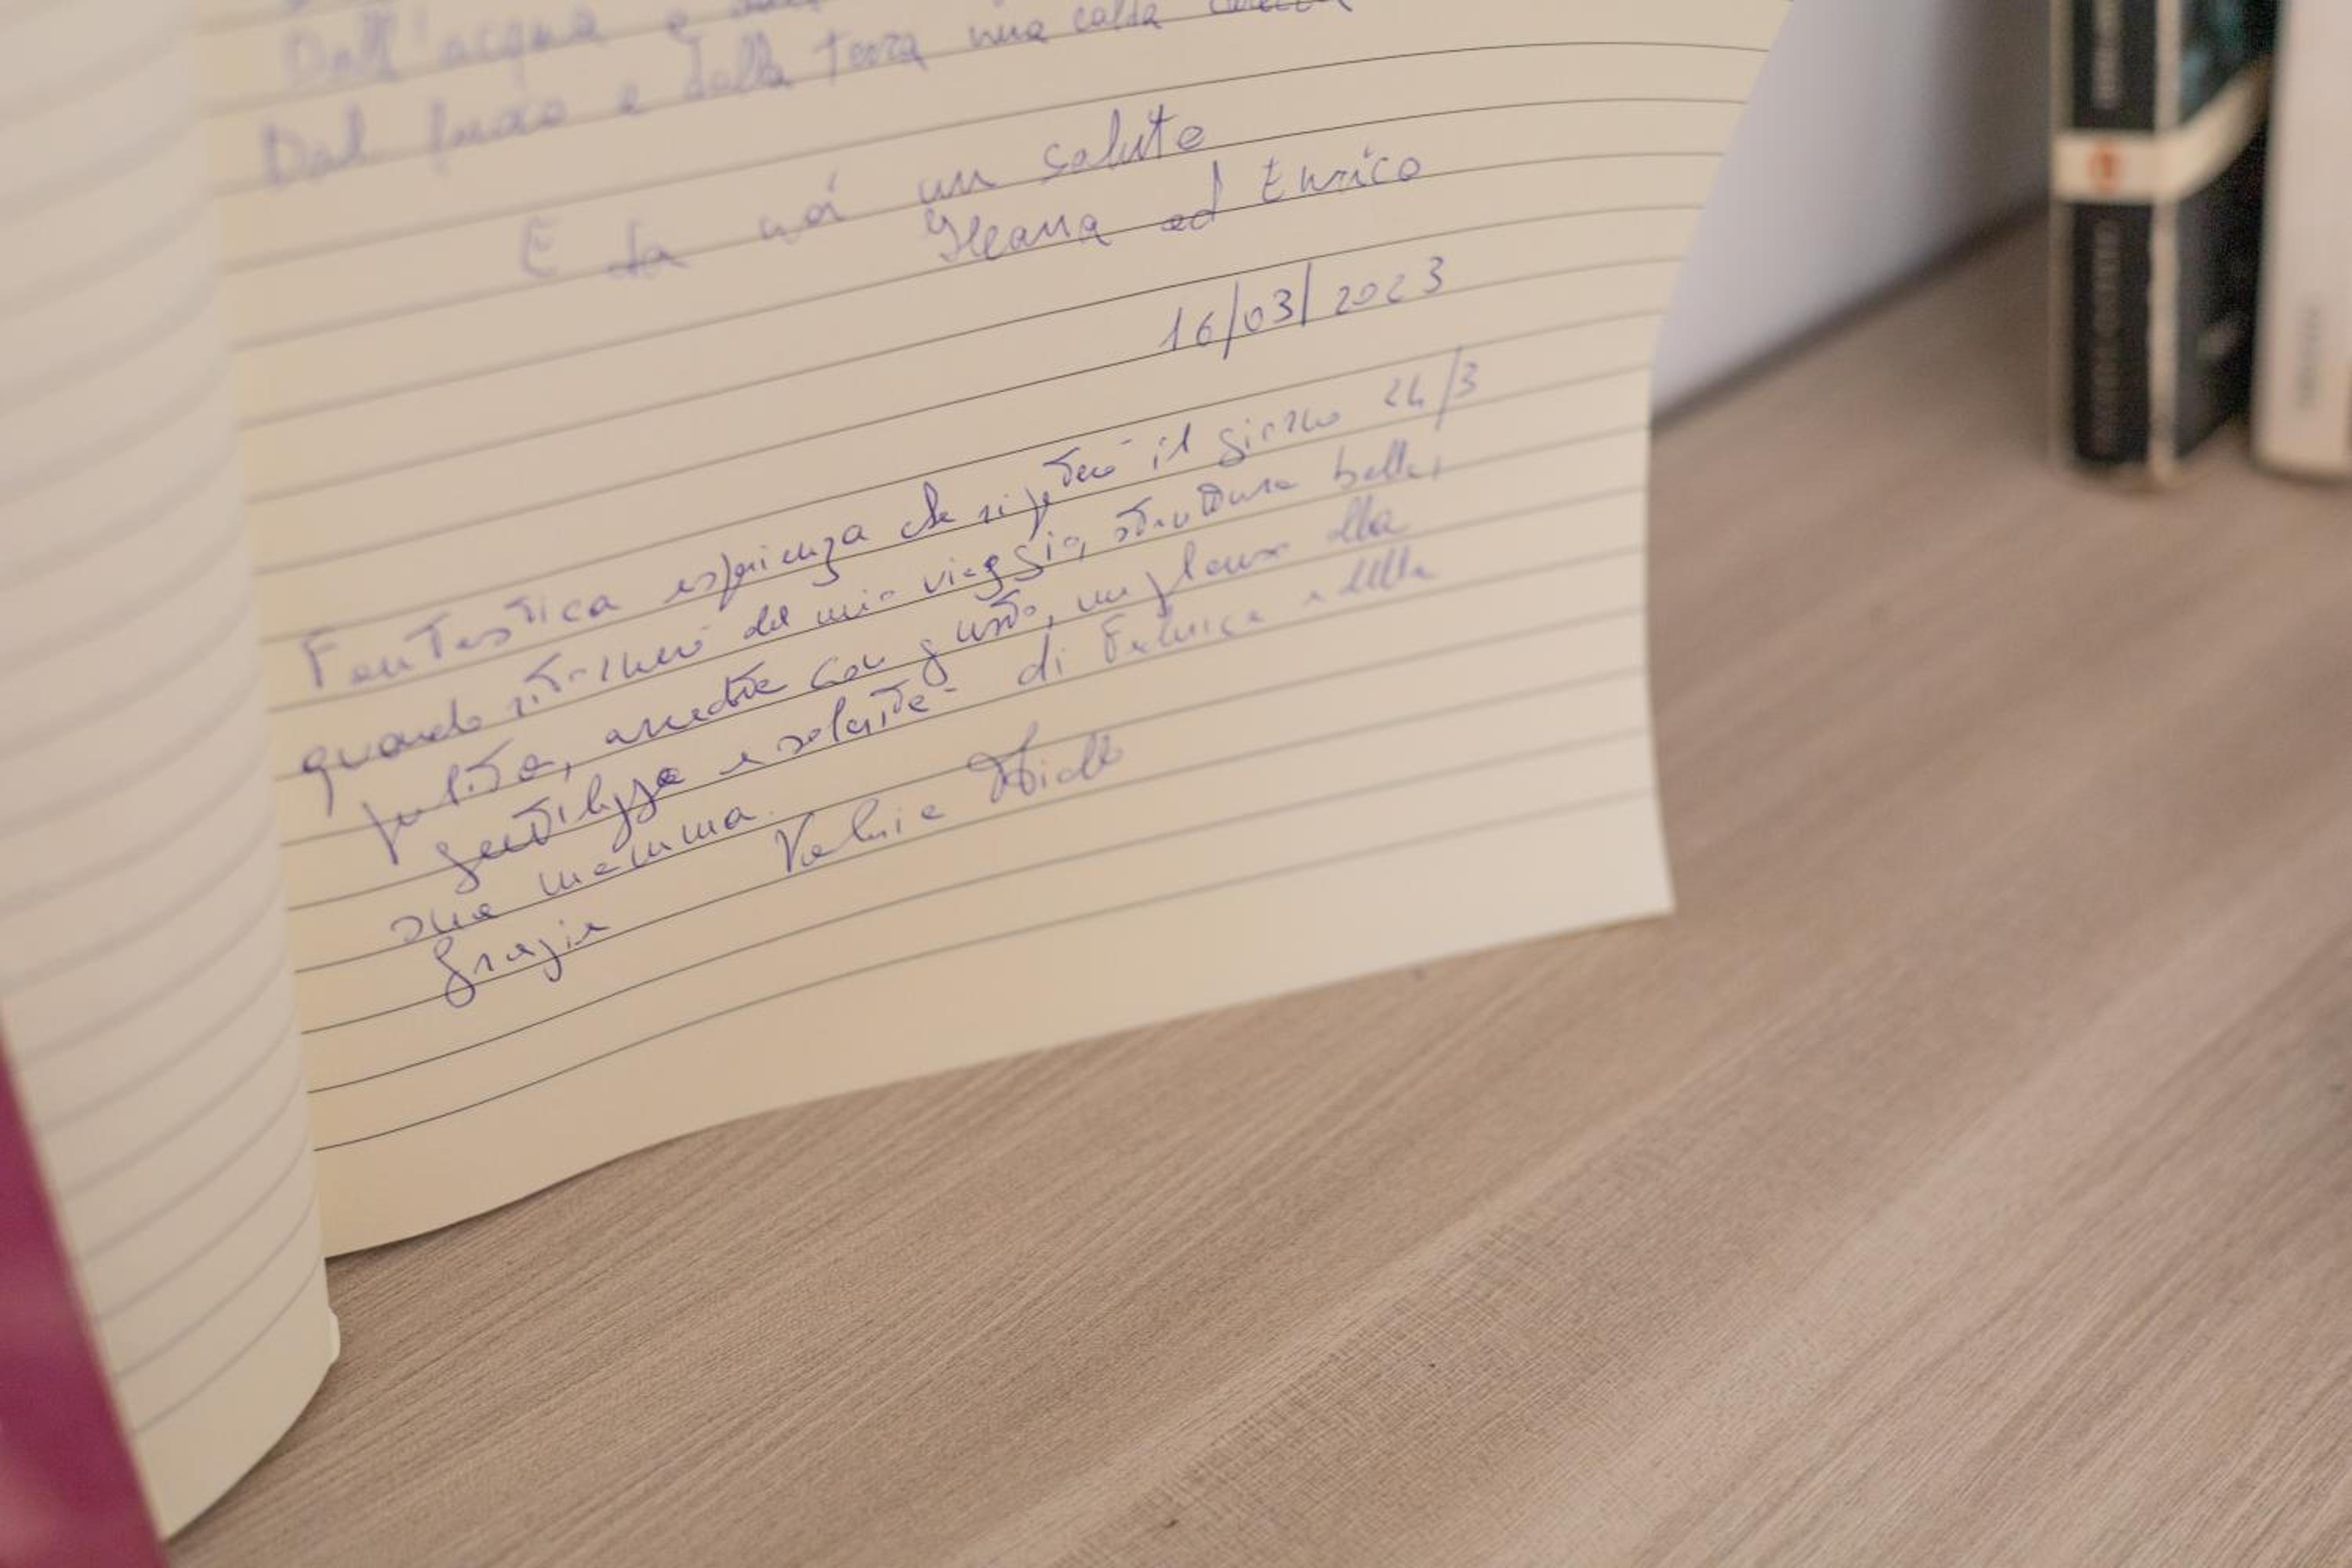 Dall'acqua e
Dal fuoco e dalla terra una calda carezza
E da noi un saluto
Ileana ed Enrico
16/03/2023
Fantastica esperienza che ripeterò il giorno 24/3
quando ritornerò dal mio viaggio, struttura bella,
pulita, arredata con gusto, un plauso alla
gentilezza e solarità di Federica e della
sua mamma.
Grazie Valerie